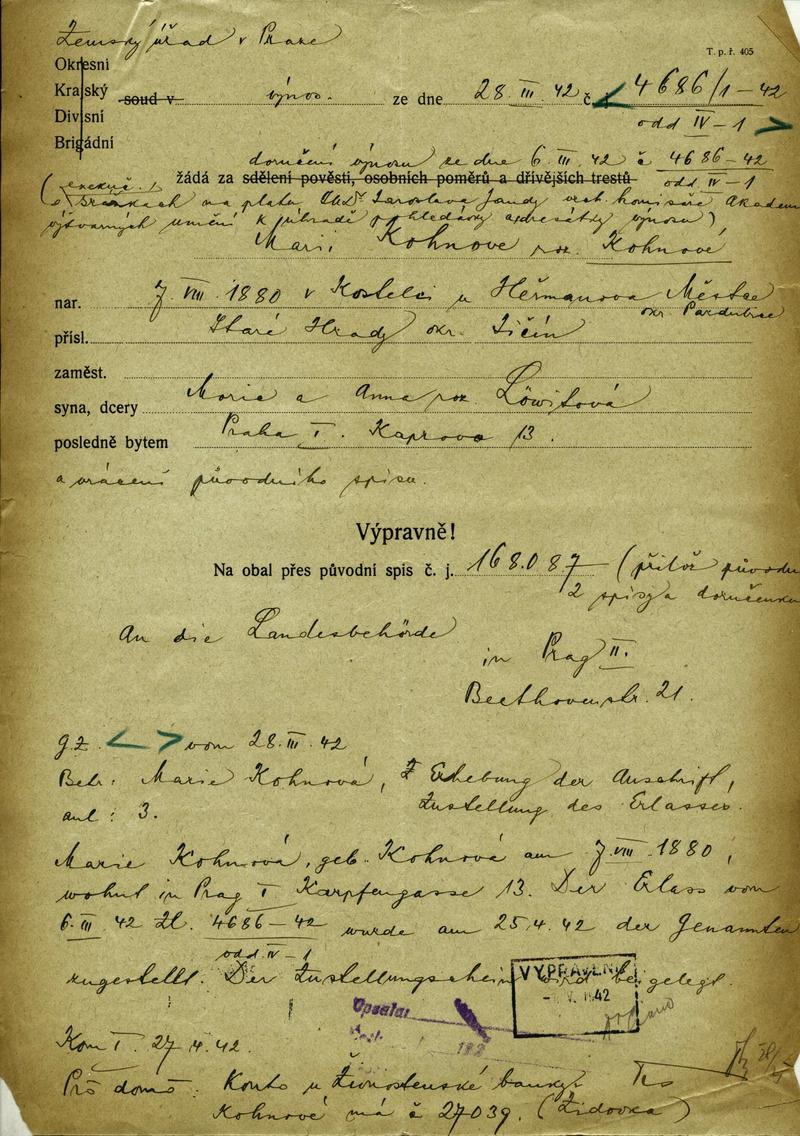 Zemský úřad v Praze
T. p. ř. 405
Okresní
Krajský soud v výnos. ze dne 28. III. 42 č. 4686/1-42
Divisní odd IV-1
Brigádní
doručení výnosu ze dne 6. III. 42 č 4686-42
žádá za sdělení pověsti, osobních poměrů a dřívějších trestů odd IV-1
o srážkách na platu Jaroslava Jandy Akadem
výtvarných umění k úhradě pohledávky adresátky výnosu)
Marii Kohnové roz. Kohnové
nar. 7. VIII. 1880 v Kostelci u Heřmanova Městce
okr. Pardubice
přísl. Staré Hrady okr. Jičín
zaměst.
syna, dcery Morice a Anna roz. Löwitová
posledně bytem Praha I. Kaprova 13.
a vrácení původního spisu.
Výpravně!
Na obal přes původní spis č. j. 168.087 (přilož původní
2 spisy a doručenku
An die Landesbehörde
in Prag II.
Beethovenstr. 21.
G.Z. < > vom 28. III. 42
Betr: Marie Kohnová, Erhebung der Anschrift,
anl: 3. Zustellung des Erlasses.
Marie Kohnová, geb. Kohnová am 7. VIII. 1880,
wohnt in Prag I Karpfengasse 13. Der Erlass vom
6. III. 42 Zl. 4686-42 wurde am 25.4.42 der Genannten
odd. IV-1
zugestellt. Der Zustellungsschein wird beigelegt.
VYPRAVENO
V. 1942
Opsala:
Kom I. 27.4.42.
Pro domo: Konto u Živnostenské banky
Kohnové má č 27039. (Židovka)